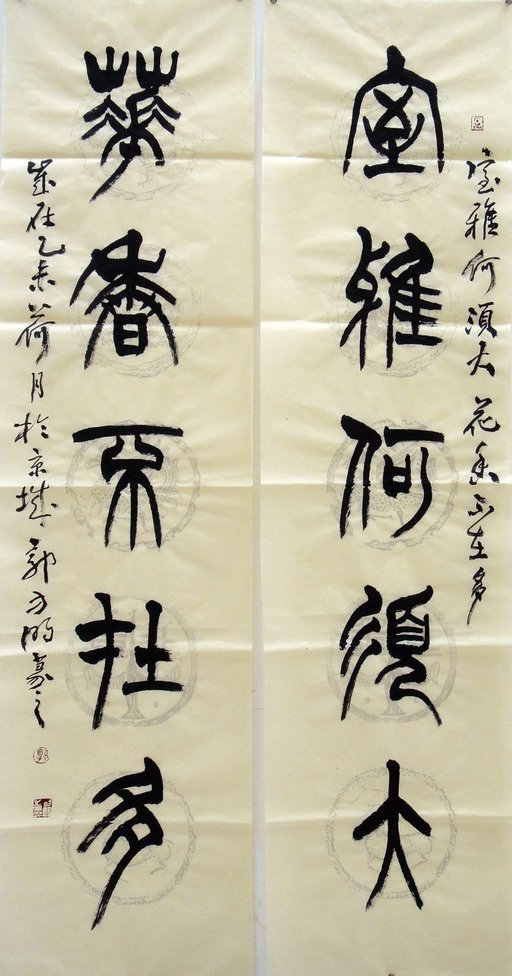 室雅何須大 花香不在多
室雅何須大
華香不在多
歲在乙未荷月於京城 郭明篆之